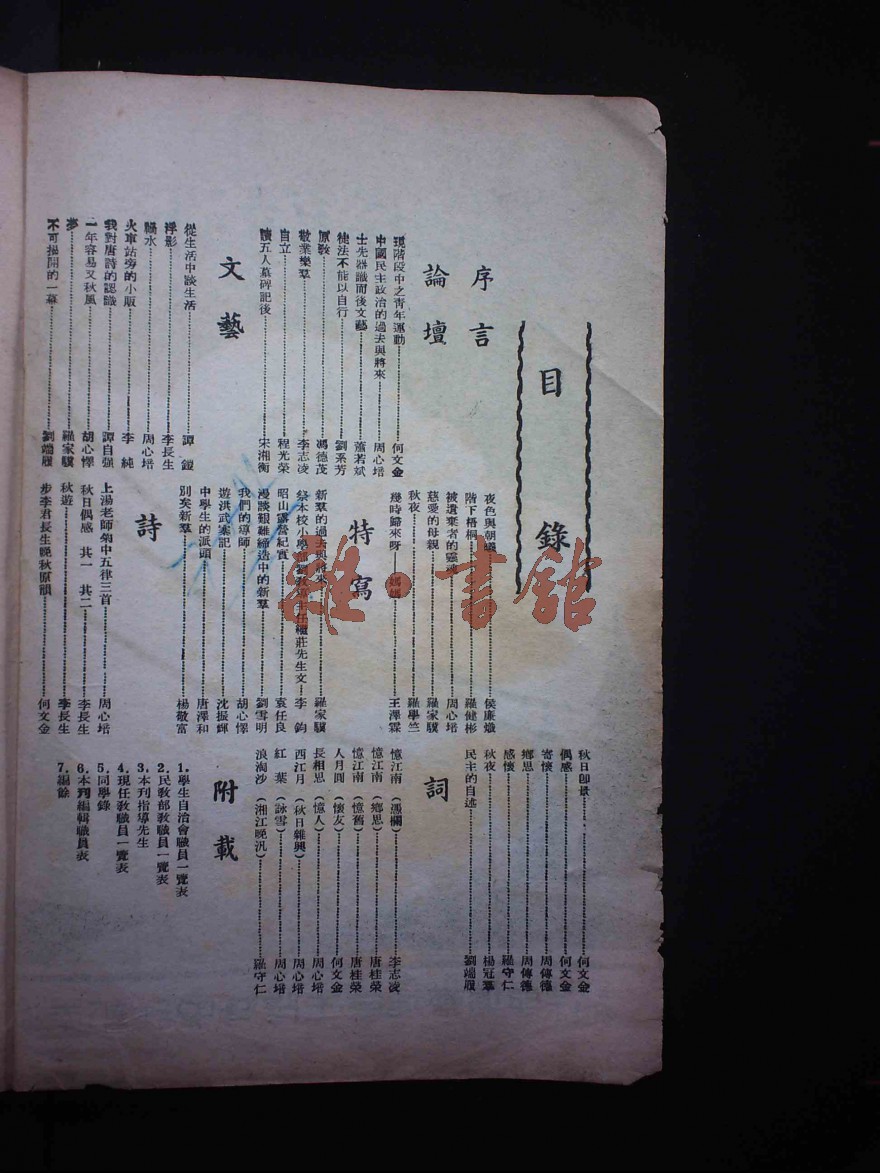 目錄
序言
論壇
現階段中之青年運動 何文金
中國民主政治的過去與將來 周心培
士先器識而後文藝 蕭若斌
徒法不能以自行 劉系芳
原教 馮德茂
敬業樂羣 李志凌
自立 程光榮
讀五人墓碑記後 宋湘衡
文藝
從生活中談生活 譚鎧
浮影 李長生
禍水 周心培
火車站旁的小販 李純
我對唐詩的認識 譚自強
一年容易又秋風 胡心懌
夢 羅家驥
不可揚開的一幕 劉端履
夜色與朝曦 侯廉熾
階下梧桐 羅健彬
被遺棄者的靈魂 周心培
慈愛的母親 羅家驥
秋夜 羅學竺
幾時歸來呀 媽媽 王澤霖
特寫
新羣的過去與將來 羅家驥
祭本校小學部劉教導主任 莊先生文 李鈞
昭山露營紀實 袁任良
漫談艱難締造中的新羣 劉雪明
我們的導師 胡心懌
遊洪武案記 沈振輝
中學生的派頭 唐澤和
別矣新羣 楊敬富
詩
上湯老師菊中五律三首 周心培
秋日偶感 其一 其二 李長生
秋遊 李長生
步李君長生晚秋原韻 何文金
秋日即景 何文金
偶感 何文金
寄懷 周傳德
鄉思 周傳德
感懷 羅守仁
秋夜 楊冠羣
民主的自述 劉端履
詞
憶江南（憑欄） 李志凌
憶江南（鄉思） 唐桂榮
憶江南（憶舊） 唐桂榮
人月圓（懷友） 何文金
長相思（憶人） 周心培
西江月（秋日雜興） 周心培
紅葉（詠雪） 周心培
浪淘沙（湘江晚汎） 羅守仁
附載
1.學生自治會職員一覽表
2.民教部教職員一覽表
3.本刊指導先生
4.現任教職員一覽表
5.同學錄
6.本刊編輯職員表
7.編餘
雜·書館